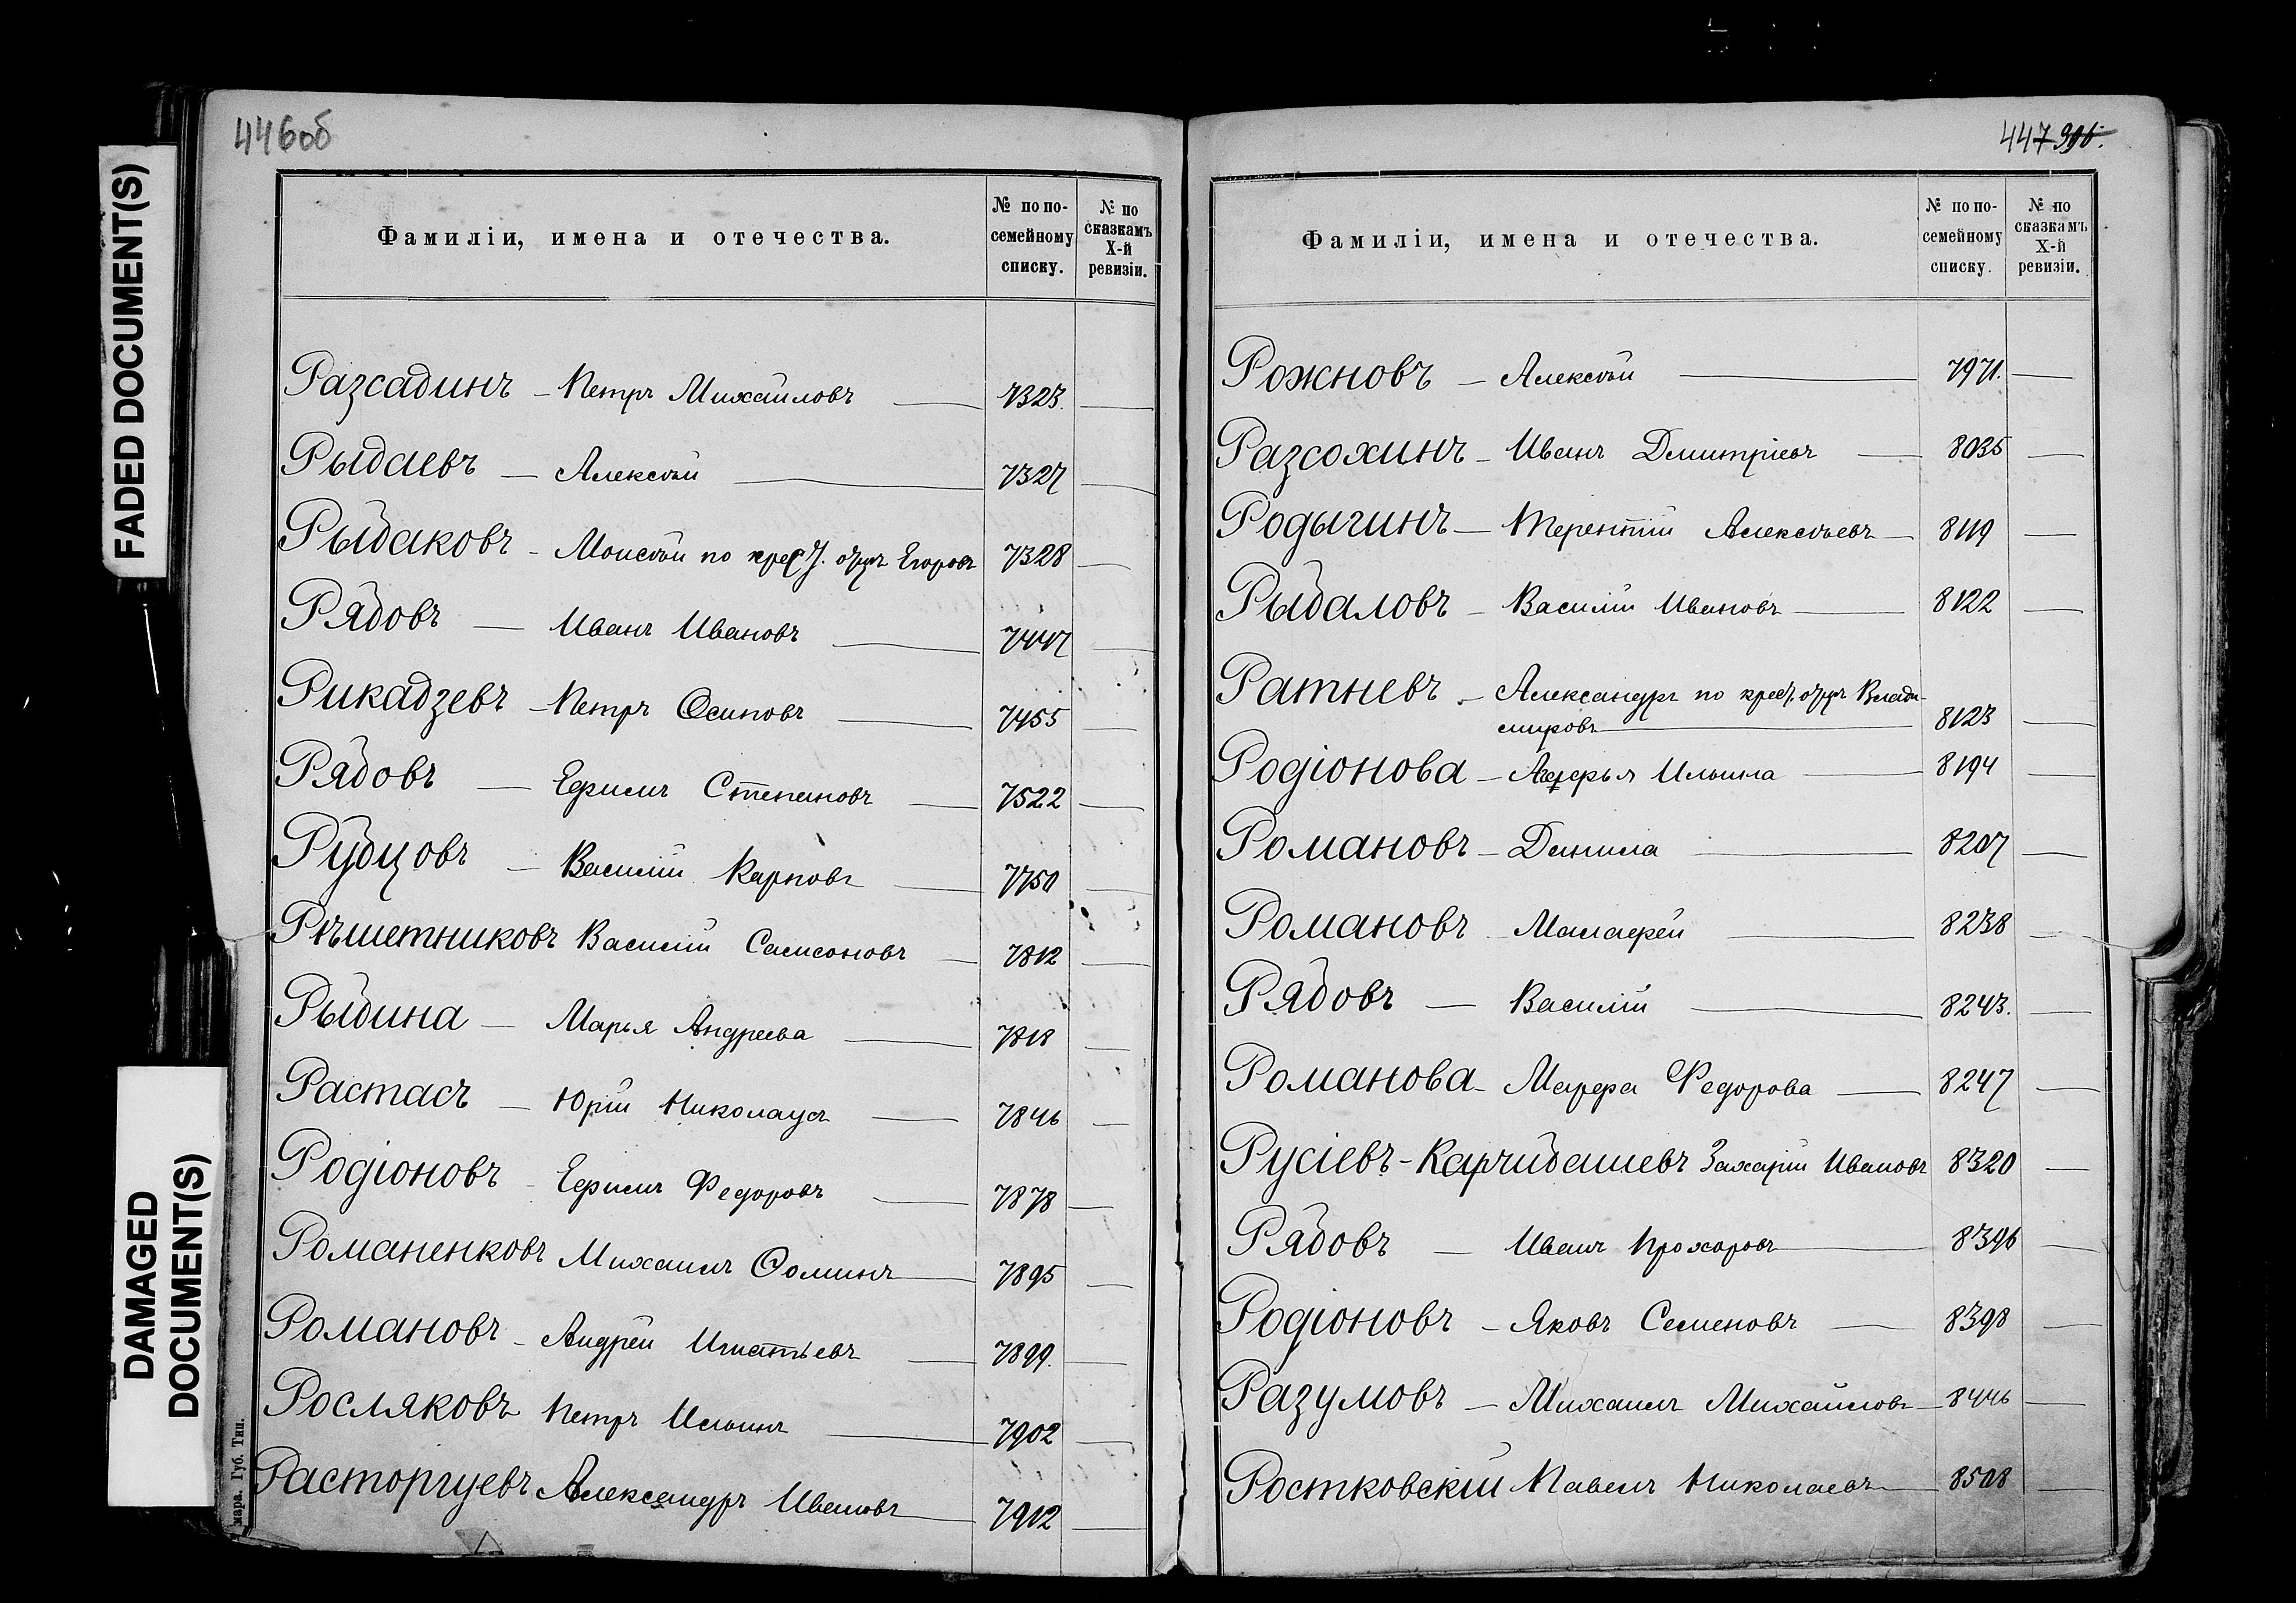 FADED DOCUMENT(S)
DAMAGED
DOCUMENT(S)
446об
Фамиліи, имена и отечества.
№ по по-
семейному
списку.
№ по
сказкамъ
X-й
ревизіи.
Разсадинъ - Петръ Михайловъ 7323.
Рыбаевъ - Алексѣй 7327
Рыбаковъ - Моисѣй по крест. отцу Егоровъ 7328
Рябовъ - Иванъ Ивановъ 7447
Рикадзевъ - Петръ Осиповъ 7455
Рябовъ - Ефимъ Степановъ 7522
Рубцовъ - Василій Карповъ 7750
Рѣшетниковъ Василій Самсоновъ 7812
Рыбина - Марья Андреева 7818
Растасъ - Юрій Николаусъ 7846
Родіоновъ - Ефимъ Федоровъ 7878
Романенковъ Михаилъ Ѳоминъ 7895
Романовъ - Андрей Игнатьевъ 7899.
Росляковъ Петръ Ильинъ 7902
Расторгуевъ Александръ Ивановъ 7912
мара. Губ. Тип.
447 396.
Фамиліи, имена и отечества.
№ по по-
семейному
списку.
№ по
сказкамъ
X-й
ревизіи.
Рожновъ - Алексѣй 7971.
Разсохинъ - Иванъ Дмитріевъ 8035
Родыгинъ - Терентій Алексѣевъ 8119
Рыбаловъ - Василій Ивановъ 8122
Ратневъ - Александръ по крест. отцу Влади-
міровъ 8123
Родіонова - Ильина 8194
Романовъ - Данила 8207
Романовъ - Малафей 8238
Рябовъ - Василій 8243.
Романова - Марфа Федорова 8247
Русіевъ-Карчибашевъ Захарій Ивановъ 8320
Рябовъ - Иванъ Прохоровъ 8396
Родіоновъ - Яковъ Семеновъ 8398
Разумовъ - Михаилъ Михайловъ 8446
Ростковскій Павелъ Николаевъ 8508